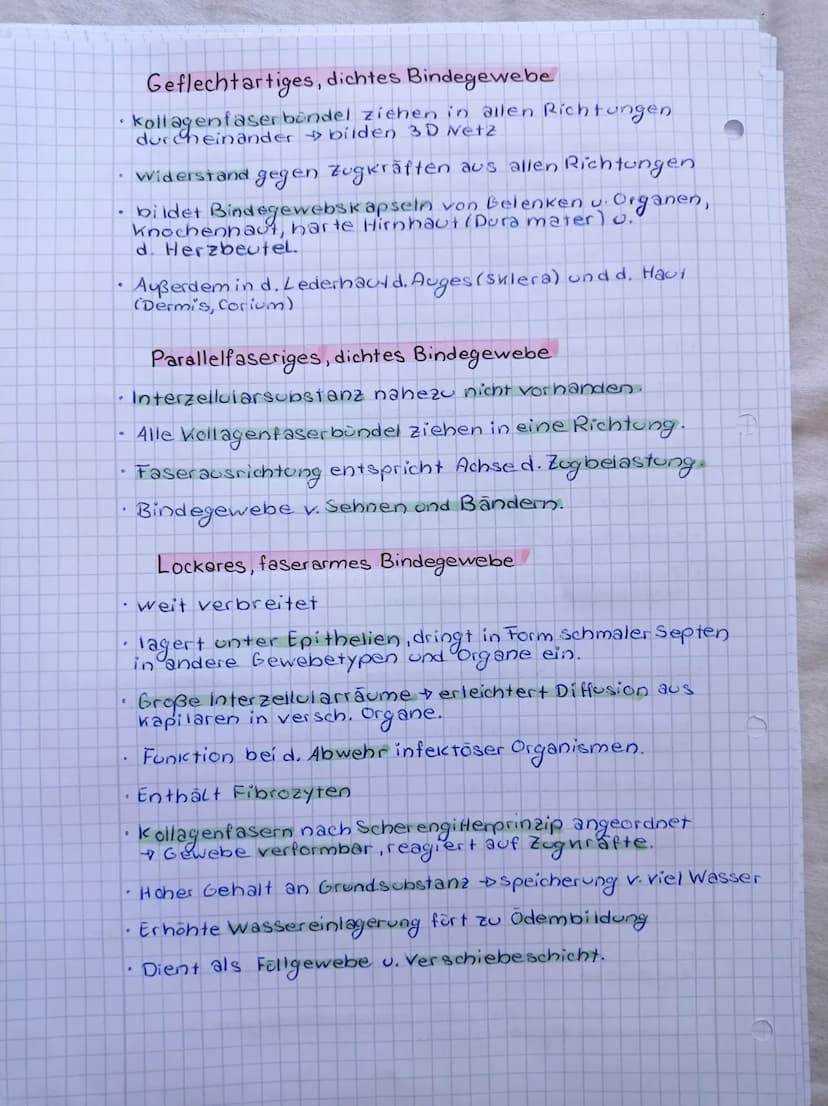 Geflechtartiges, dichtes Bindegewebe
· Kollagenfaserbündel ziehen in allen Richtungen
durcheinander → bilden 3D Netz
· Widerstand gegen Zugkräften aus allen Richtungen
· bildet Bindegewebskapseln von Gelenken u. Organen,
Knochenhaut, harte Hirnhaut (Dura mater) u.
d. Herzbeutel.
· Außerdem in d. Lederhaut d. Auges (Sklera) und d. Haut
(Dermis, Corium)
Parallelfaseriges, dichtes Bindegewebe
· Interzellularsubstanz nahezu nicht vorhanden.
· Alle Kollagenfaserbündel ziehen in eine Richtung.
· Faserausrichtung entspricht Achse d. Zugbelastung.
· Bindegewebe v. Sehnen und Bändern.
Lockeres, faserarmes Bindegewebe
· weit verbreitet
· lagert unter Epithelien, dringt in Form schmaler Septen
in andere Gewebetypen und Organe ein.
· Große Interzellularräume → erleichtert Diffusion aus
Kapilaren in versch. Organe.
· Funktion bei d. Abwehr infektöser Organismen.
· Enthält Fibrozyten
· Kollagenfasern nach Scherengitterprinzip angeordnet
→ Gewebe verformbar, reagiert auf Zugkräfte.
· Hoher Gehalt an Grundsubstanz → Speicherung v. viel Wasser
· Erhöhte Wassereinlagerung fürt zu Ödembildung
· Dient als Füllgewebe u. Verschiebeschicht.